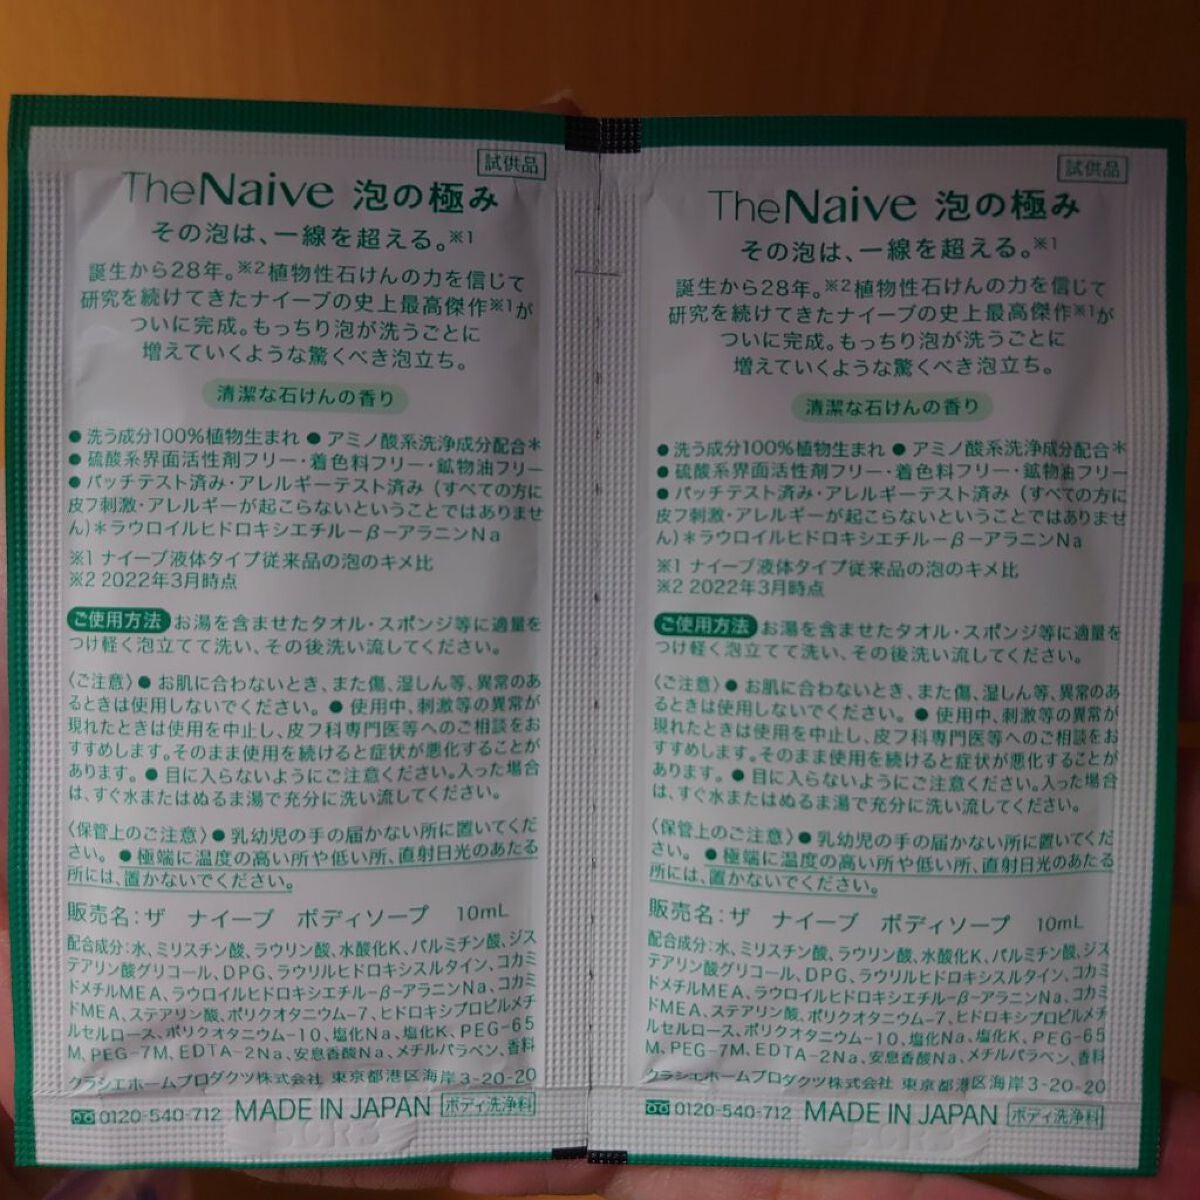 試供品
TheNaive 泡の極み
その泡は、一線を超える。※1
誕生から28年。※2植物性石けんの力を信じて
研究を続けてきたナイーブの史上最高傑作※1が
ついに完成。もっちり泡が洗うごとに
増えていくような驚くべき泡立ち。
清潔な石けんの香り
● 洗う成分100%植物生まれ ● アミノ酸系洗浄成分配合＊
● 硫酸系界面活性剤フリー・着色料フリー・鉱物油フリー
● パッチテスト済み・アレルギーテスト済み（すべての方に
皮フ刺激・アレルギーが起こらないということではありませ
ん）＊ラウロイルヒドロキシエチル－β－アラニンNa
※1 ナイーブ液体タイプ従来品の泡のキメ比
※2 2022年3月時点
ご使用方法 お湯を含ませたタオル・スポンジ等に適量を
つけ軽く泡立てて洗い、その後洗い流してください。
〈ご注意〉● お肌に合わないとき、また傷、湿しん等、異常のあ
るときは使用しないでください。 ● 使用中、刺激等の異常が
現れたときは使用を中止し、皮フ科専門医等へのご相談をお
すすめします。そのまま使用を続けると症状が悪化することが
あります。 ● 目に入らないようにご注意ください。入った場合
は、すぐ水またはぬるま湯で充分に洗い流してください。
〈保管上のご注意〉● 乳幼児の手の届かない所に置いてくだ
さい。 ● 極端に温度の高い所や低い所、直射日光のあたる
所には、置かないでください。
販売名：ザ ナイーブ ボディソープ 10mL
配合成分：水、ミリスチン酸、ラウリン酸、水酸化K、パルミチン酸、ジス
テアリン酸グリコール、DPG、ラウリルヒドロキシスルタイン、コカミ
ドメチルMEA、ラウロイルヒドロキシエチル－β－アラニンNa、コカミ
ドMEA、ステアリン酸、ポリクオタニウム－7、ヒドロキシプロピルメチ
ルセルロース、ポリクオタニウム－10、塩化Na、塩化K、PEG－65
M、PEG－7M、EDTA－2Na、安息香酸Na、メチルパラベン、香料
クラシエホームプロダクツ株式会社 東京都港区海岸3-20-20
0120-540-712 MADE IN JAPAN ボディ洗浄料
試供品
TheNaive 泡の極み
その泡は、一線を超える。※1
誕生から28年。※2植物性石けんの力を信じて
研究を続けてきたナイーブの史上最高傑作※1が
ついに完成。もっちり泡が洗うごとに
増えていくような驚くべき泡立ち。
清潔な石けんの香り
● 洗う成分100%植物生まれ ● アミノ酸系洗浄成分配合＊
● 硫酸系界面活性剤フリー・着色料フリー・鉱物油フリー
● パッチテスト済み・アレルギーテスト済み（すべての方に
皮フ刺激・アレルギーが起こらないということではありませ
ん）＊ラウロイルヒドロキシエチル－β－アラニンNa
※1 ナイーブ液体タイプ従来品の泡のキメ比
※2 2022年3月時点
ご使用方法 お湯を含ませたタオル・スポンジ等に適量を
つけ軽く泡立てて洗い、その後洗い流してください。
〈ご注意〉● お肌に合わないとき、また傷、湿しん等、異常のあ
るときは使用しないでください。 ● 使用中、刺激等の異常が
現れたときは使用を中止し、皮フ科専門医等へのご相談をお
すすめします。そのまま使用を続けると症状が悪化することが
あります。 ● 目に入らないようにご注意ください。入った場合
は、すぐ水またはぬるま湯で充分に洗い流してください。
〈保管上のご注意〉● 乳幼児の手の届かない所に置いてくだ
さい。 ● 極端に温度の高い所や低い所、直射日光のあたる
所には、置かないでください。
販売名：ザ ナイーブ ボディソープ 10mL
配合成分：水、ミリスチン酸、ラウリン酸、水酸化K、パルミチン酸、ジス
テアリン酸グリコール、DPG、ラウリルヒドロキシスルタイン、コカミ
ドメチルMEA、ラウロイルヒドロキシエチル－β－アラニンNa、コカミ
ドMEA、ステアリン酸、ポリクオタニウム－7、ヒドロキシプロピルメチ
ルセルロース、ポリクオタニウム－10、塩化Na、塩化K、PEG－65
M、PEG－7M、EDTA－2Na、安息香酸Na、メチルパラベン、香料
クラシエホームプロダクツ株式会社 東京都港区海岸3-20-20
0120-540-712 MADE IN JAPAN ボディ洗浄料